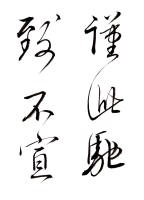 謹此馳
致不宣